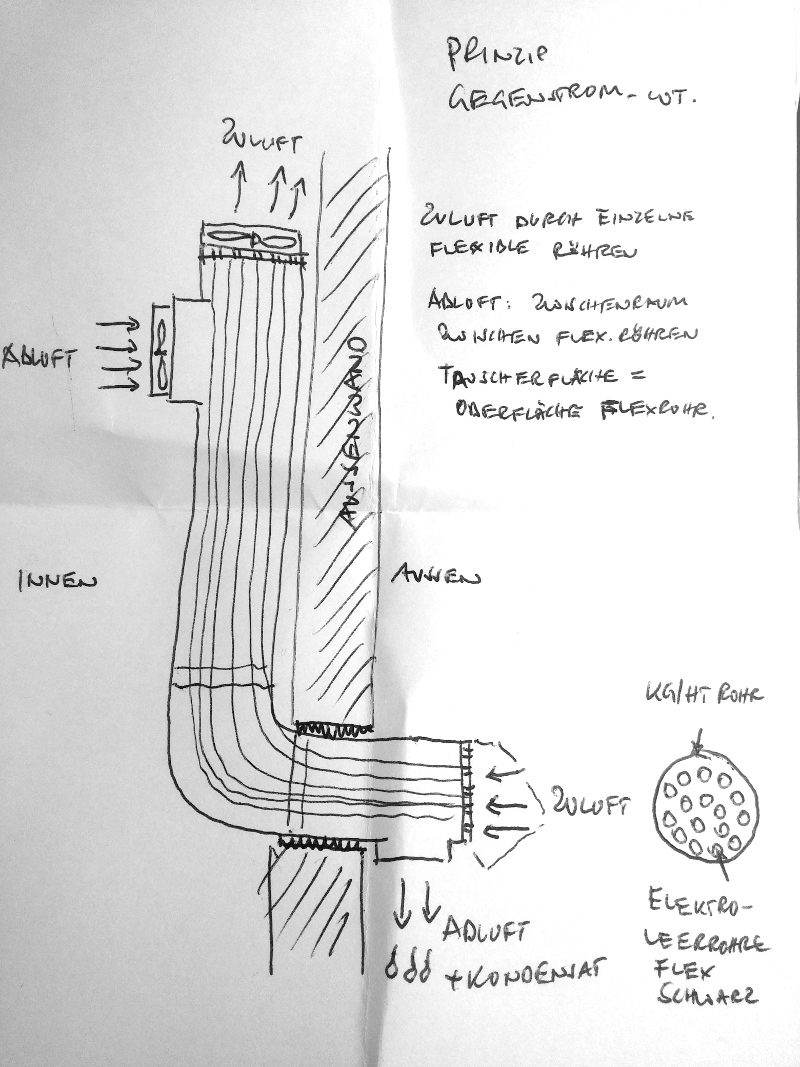 PRINZIP
GEGENSTROM-WT.
ZULUFT
ZULUFT DURCH EINZELNE
FLEXIBLE RÖHREN
ABLUFT: ZWISCHENRAUM
ZWISCHEN FLEX.RÖHREN
TAUSCHERFLÄCHE =
OBERFLÄCHE FLEXROHR.
ABLUFT
AUSSENWAND
INNEN
AUSSEN
KG/HT ROHR
ZULUFT
ELEKTRO-
LEERROHRE
FLEX
SCHWARZ
ABLUFT
+KONDENSAT